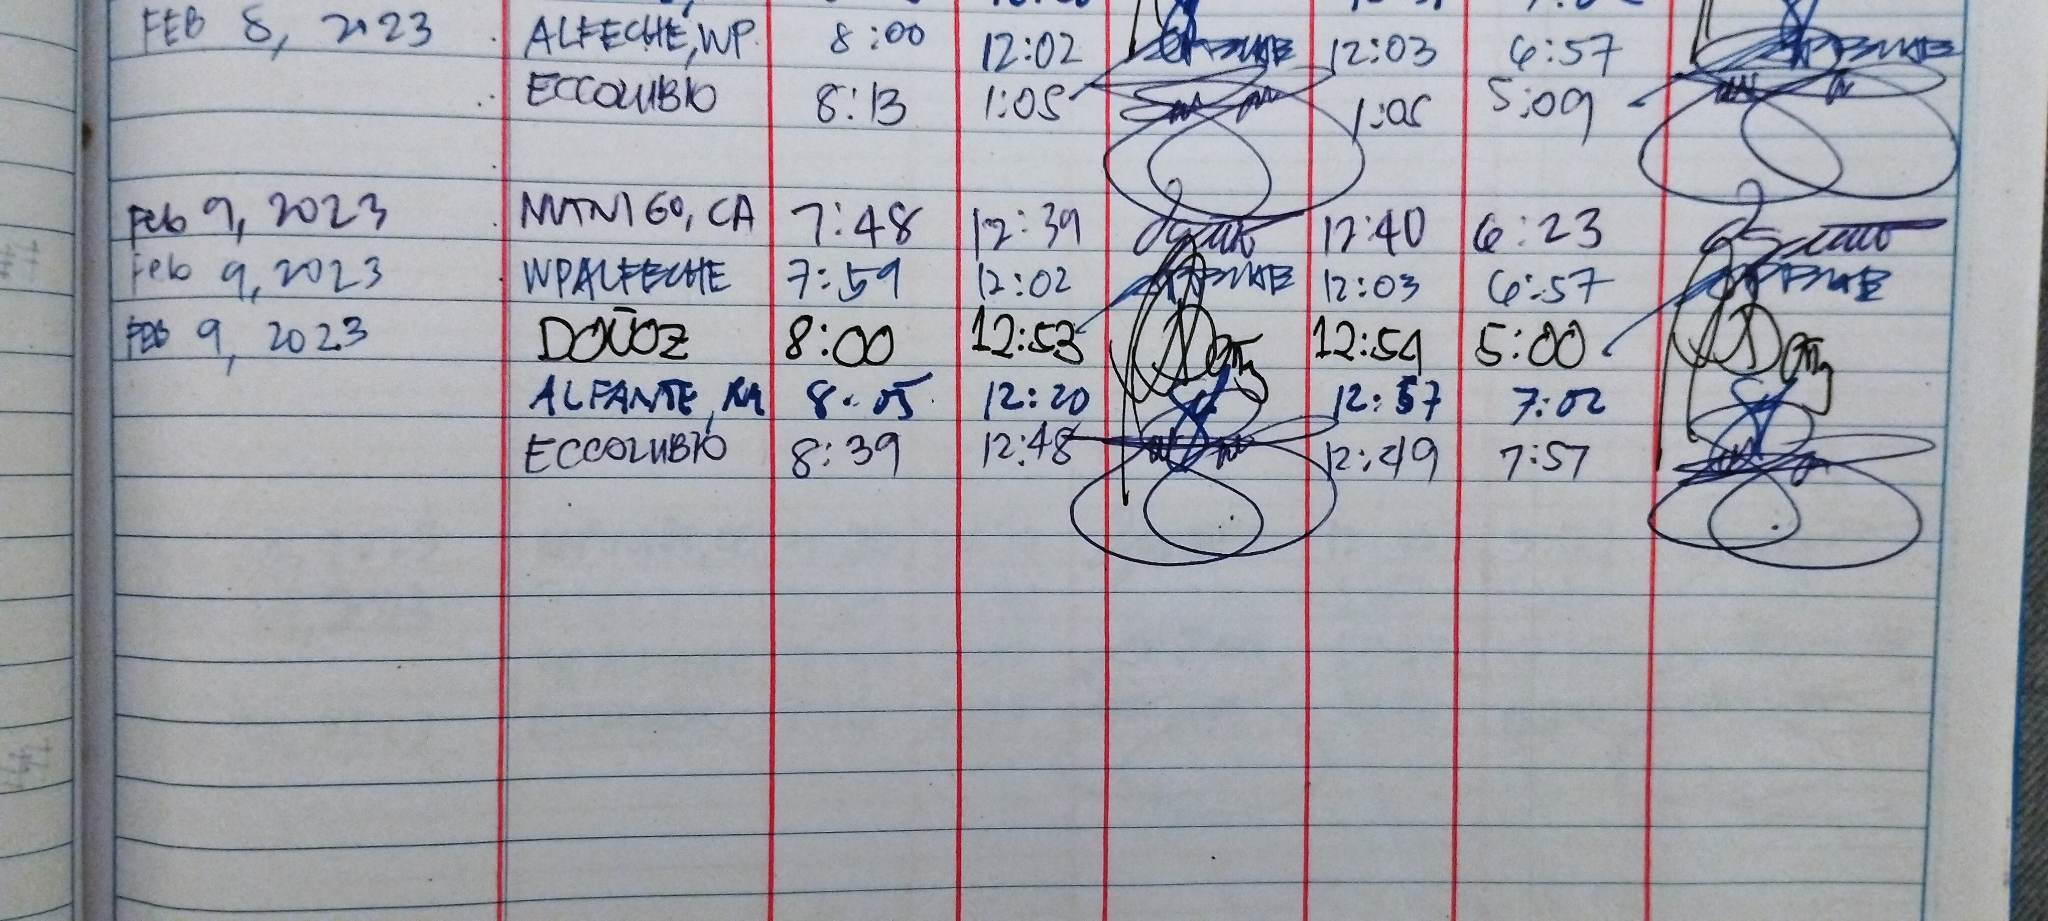 FEB 8, 2023 ALFECHE, WP. 8:00 12:02 12:03 6:57
ECCOLUBIO 8:13 1:05 1:05 5:09
Feb 9, 2023 MANIGO, CA 7:48 12:39 12:40 6:23
Feb 9, 2023 WPALFECHE 7:59 12:02 12:03 6:57
FEB 9, 2023 DOÑOZ 8:00 12:53 12:54 5:00
ALFANTE, RA 8:05 12:20 12:57 7:02
ECCOLUBIO 8:39 12:48 12:49 7:57